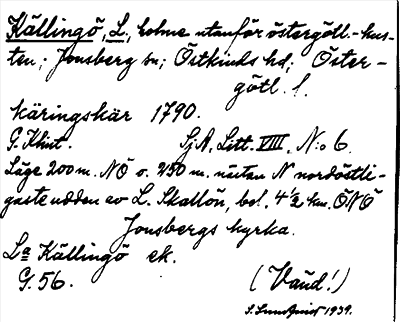 Källingö, L., holme utanför östergötl.-kus-
ten; Jonsberg sn; Östkinds hd; Öster-
götl. l.
Käringskär 1790.
G. Klint. SjA, Litt. VIII, N:o 6.
Läge 200 m. NÖ o. 250 m. nästan N nordöstli-
gaste udden av L. Skallön, bel. 4 ½ km. ÖNÖ
Jonsbergs kyrka.
La Källingö ek.
G. 56. (Vänd!)
S. Sundqvist 1939.